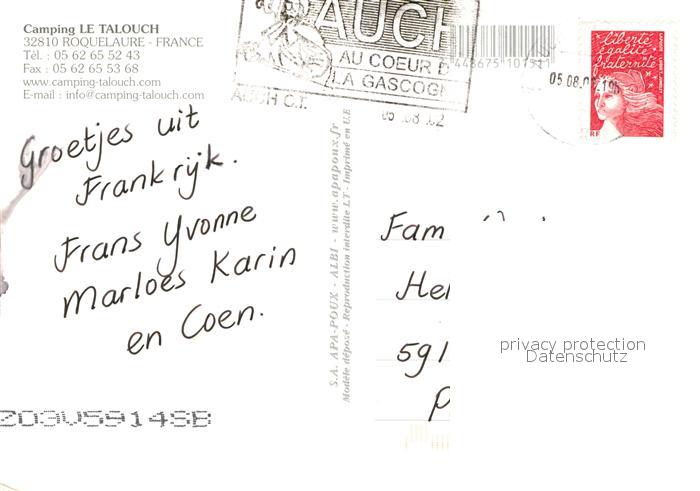 Camping LE TALOUCH
32810 ROQUELAURE - FRANCE
Tél. : 05 62 65 52 43
Fax : 05 62 65 53 68
www.camping-talouch.com
E-mail : info@camping-talouch.com
AUCH
AU COEUR D
LA GASCOGN
AUCH C.T.
05 .08 .02
liberté
égalité
fraternité
RF
Groetjes uit
Frankrijk.
Frans Yvonne
Marloes Karin
en Coen.
S.A. APA-POUX - ALBI - www.apapoux.fr
Modèle déposé - Reproduction interdite L.T - Imprimé en U.E
Fam
591
privacy protection
Datenschutz